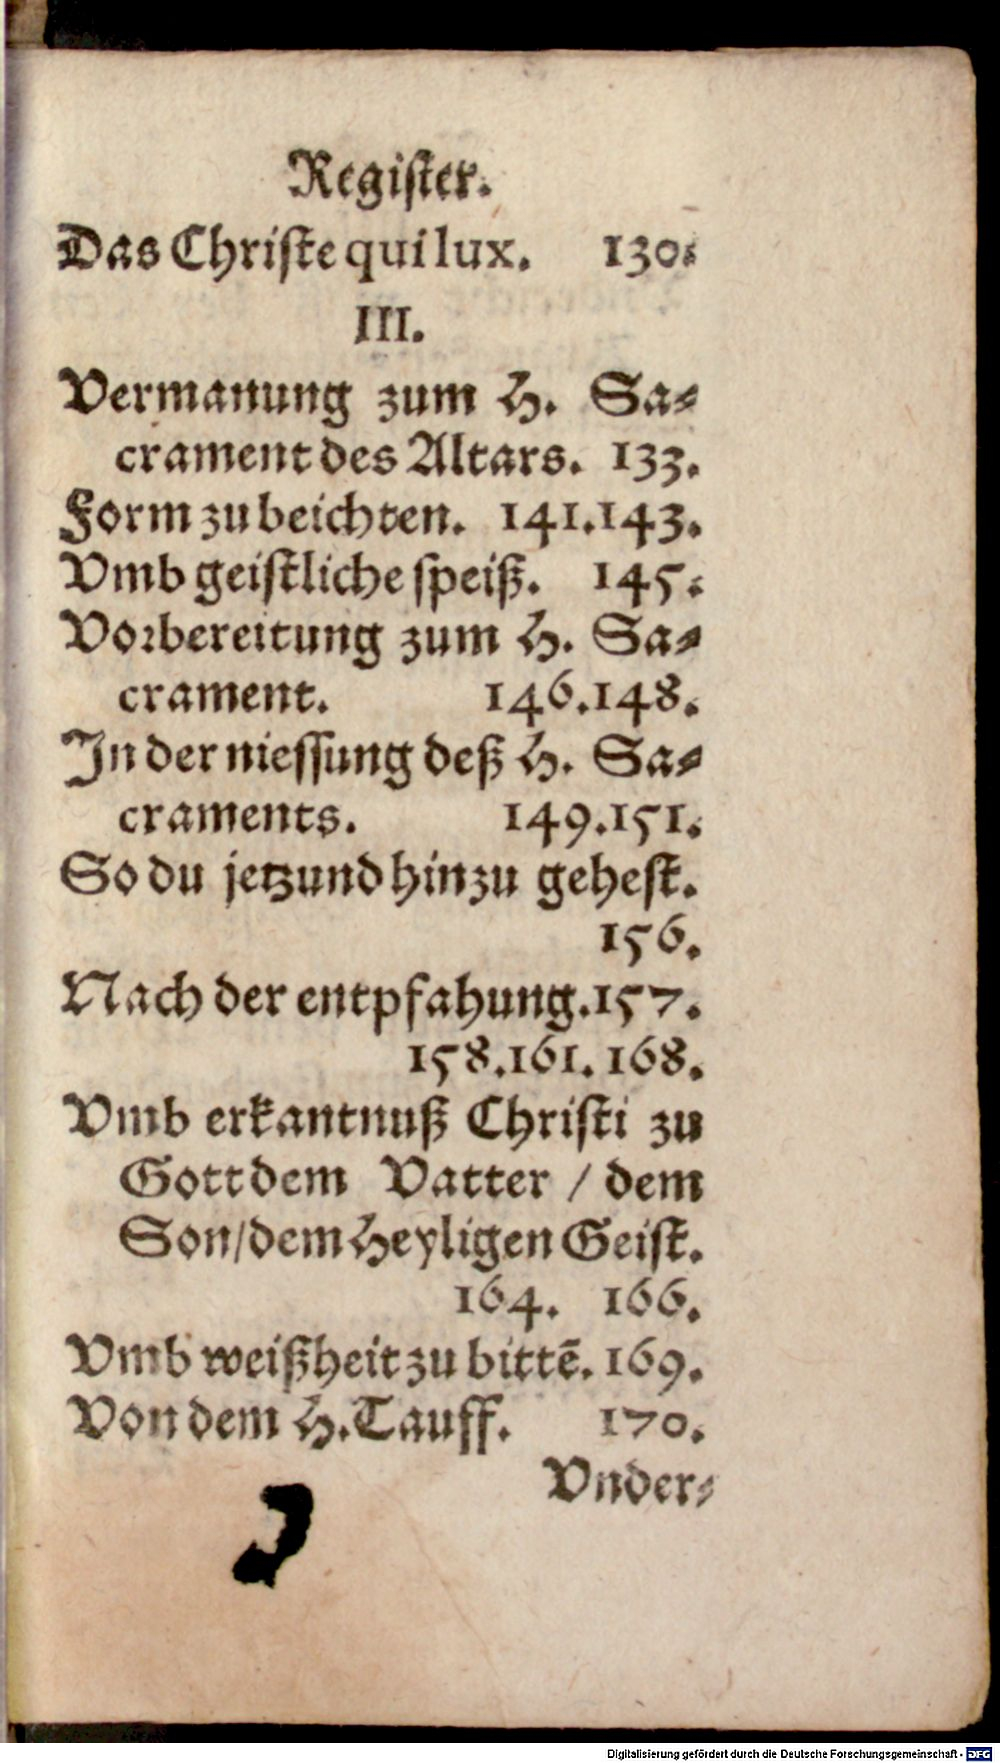 Register.
Das Christe qui lux. 130.
III.
Vermanung zum H. Sa-
crament des Altars. 133.
Form zu beichten. 141.143.
Vmb geistliche speiß. 145.
Vorbereitung zum H. Sa-
crament. 146.148.
In der niessung deß H. Sa-
craments. 149.151.
So du jetzund hinzu gehest.
156.
Nach der entpfahung. 157.
158.161. 168.
Vmb erkantnuß Christi zu
Gott dem Vatter / dem
Son/dem Heyligen Geist.
164. 166.
Vmb weißheit zu bittē. 169.
Von dem H. Tauff. 170.
Vnder-
Digitalisierung gefördert durch die Deutsche Forschungsgemeinschaft - DFG